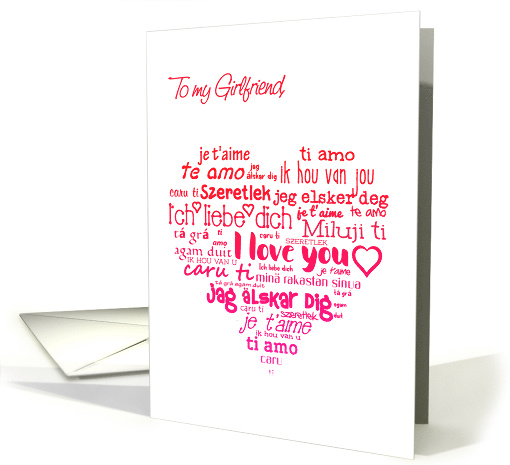 To my Girlfriend,
je t'aime ti amo
te amo jag älskar dig ik hou van jou
caru ti Szeretlek jeg elsker deg
Ich liebe dich je t'aime te amo
Miluji ti
tá grá amo caru ti SZERETLEK
agam duit I love you
IK HOU VAN U Ich liebe dich je t'aime
caru ti minä rakastan sinua
tá grá agam duit tá grá
jag älskar dig agam
caru ti Szeretlek duit
je t'aime
ik hou van u
ti amo
caru
ti